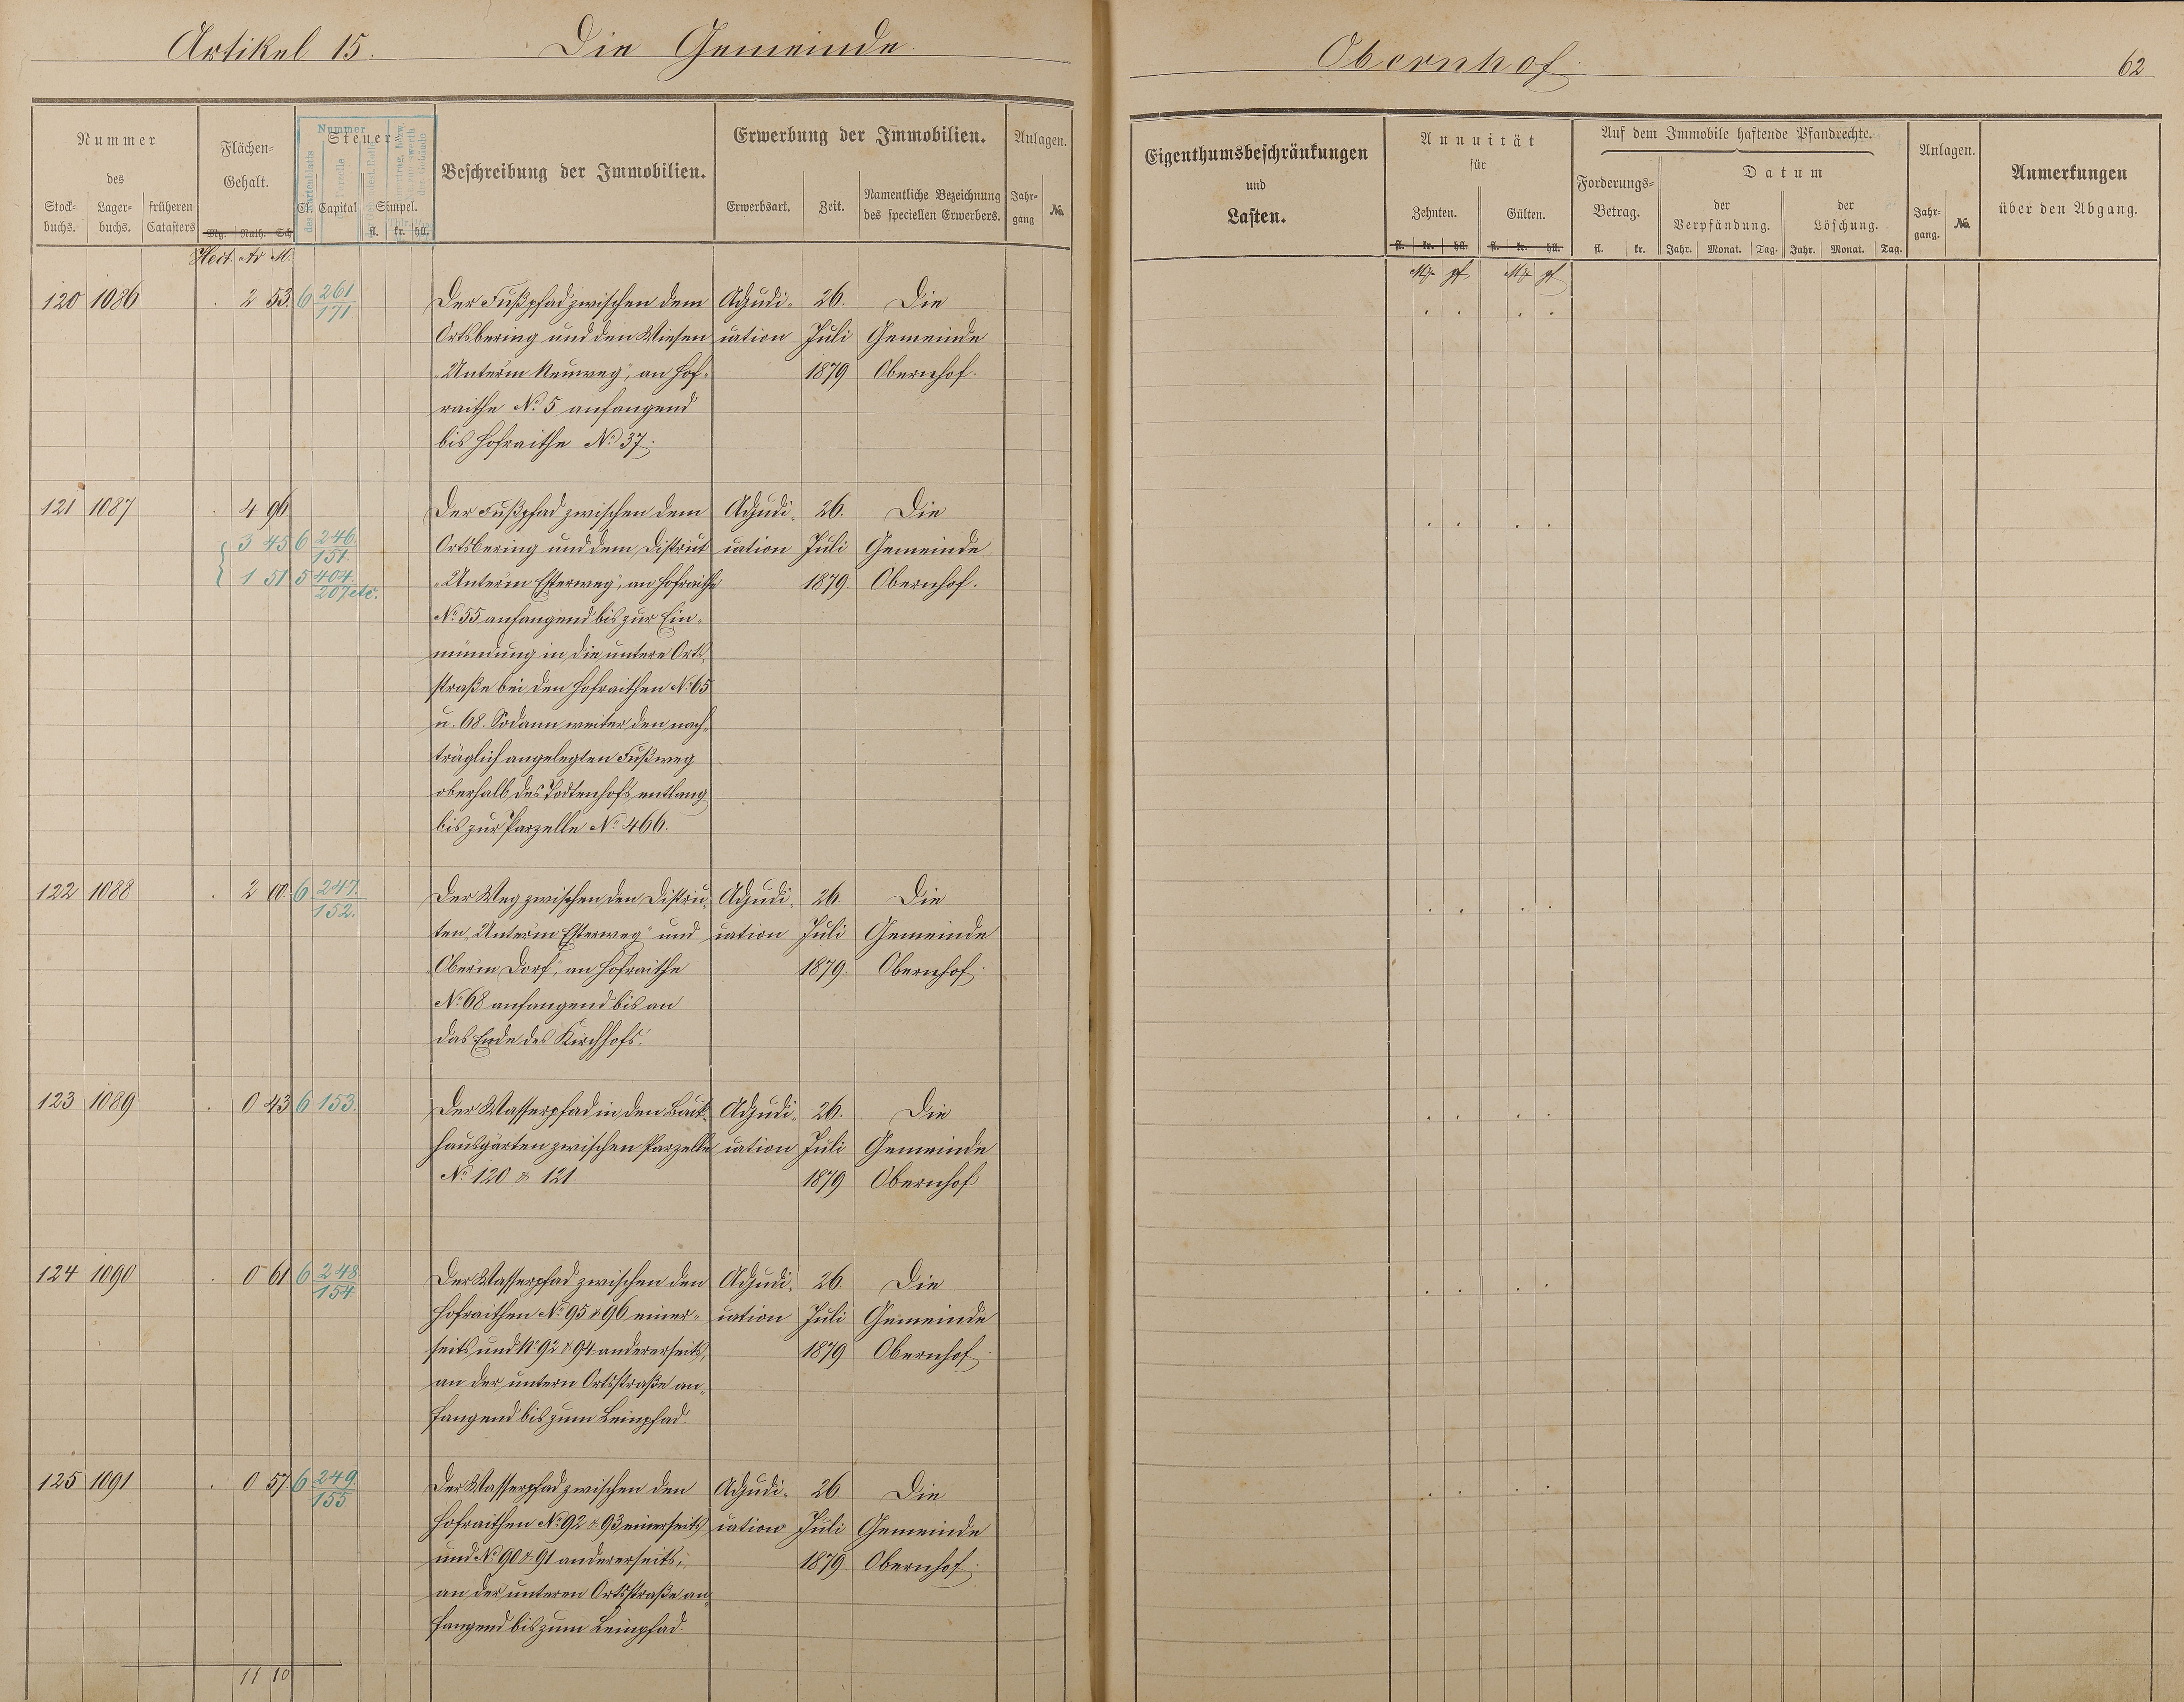 Artikel 15. Die Gemeinde
Obernhof.
62
Nummer
des
Stock-
buchs.
Lager-
buchs.
früheren
Catasters
Flächen-
Gehalt.
Mg. Ruth. Sch.
Heit. Ar M.
Steuer
Nummer
Cl. Capital Simpel.
fl. kr. hll.
Beschreibung der Immobilien.
Erwerbung der Immobilien.
Erwerbsart. Zeit.
Namentliche Bezeichnung
des speciellen Erwerbers.
Anlagen.
Jahr-
gang
No.
Eigenthumsbeschränkungen
und
Lasten.
Annuität
für
Zehnten. Gülten.
fl. kr. hll. fl. kr. hll.
Mk. pf Mk. pf
Auf dem Immobile haftende Pfandrechte.
Forderungs-
Betrag.
fl. kr.
Datum
der
Verpfändung.
der
Löschung.
Jahr. Monat. Tag. Jahr. Monat. Tag.
Anlagen.
Jahr-
gang.
No.
Anmerkungen
über den Abgang.
120 1086 . 2 53. 6 261/171. Der Fußpfad zwischen dem Adjudi- 26. Die
Ortsbering und den Wiesen cation Juli Gemeinde
„Unterm Neuweg", an Hof- 1879 Obernhof.
raithe No. 5 anfangend
bis Hofraithe No. 37.
121 1087 . 4 96 Der Fußpfad zwischen dem Adjudi- 26. Die
3 45 6 246./151. Ortsbering und dem District cation Juli Gemeinde
1 51 5 404./207 etc. „Unterm Esterweg", an Hofraithe 1879. Obernhof.
No. 55 anfangend bis zur Ein-
mündung in die untere Orts-
straße bei den Hofraithen No. 65
u. 68. Sodann weiter den nach-
träglich angelegten Fußweg
oberhalb des Todtenhofs entlang
bis zur Parzelle No. 466.
122 1088 . 2 10. 6 247./152. Der Weg zwischen den Distric- Adjudi- 26. Die
ten „Unterm Esterweg" und cation Juli Gemeinde
„Oberm Dorf", an Hofraithe 1879. Obernhof.
No. 68 anfangend bis an
das Ende des Kirchhofs.
123 1089 . 0 43 6 153. Der Wasserpfad in den Back- Adjudi- 26. Die
hausgärten zwischen Parzelle cation Juli Gemeinde
No. 120 & 121. 1879 Obernhof
124 1090 . 0 61 6 248/154. Der Wasserpfad zwischen den Adjudi- 26 Die
Hofraithen No. 95 & 96 einer- cation Juli Gemeinde
seits und No. 92 & 94 andererseits, 1879 Obernhof.
an der untern Ortsstraße an-
fangend bis zum Leinpfad.
125 1091 . 0 57. 6 249./155. Der Wasserpfad zwischen den Adjudi- 26 Die
Hofraithen No. 92 & 93 einerseits cation Juli Gemeinde
und No. 90 & 91 andererseits, 1879. Obernhof.
an der unteren Ortsstraße an-
fangend bis zum Leinpfad.
11 10